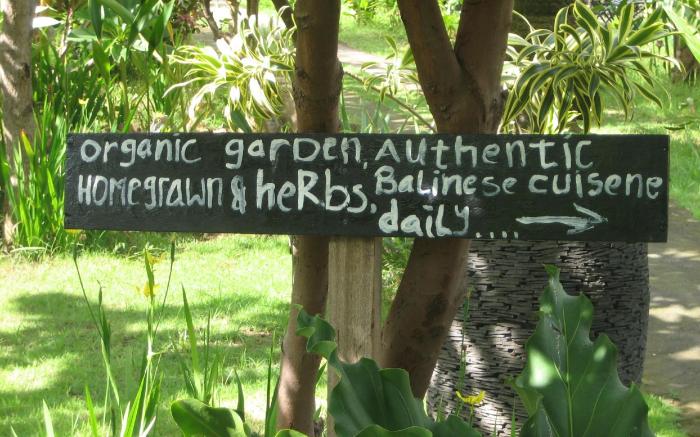 organic garden, Authentic
Homegrown & heRbs, Balinese cuisene
daily....